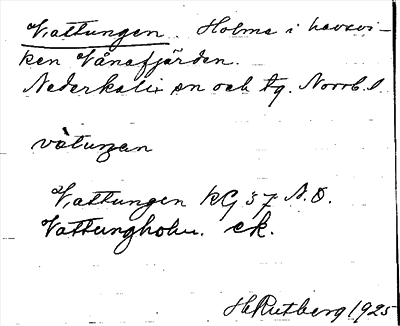 Vattungen. Holme i havsvi-
ken Vånafjärden.
Nederkalix sn och tg. Norrb. l.
vàtuŋan
Vattungen KG 37 N.O.
Vattungholm. ek.
H. Rutberg 1925